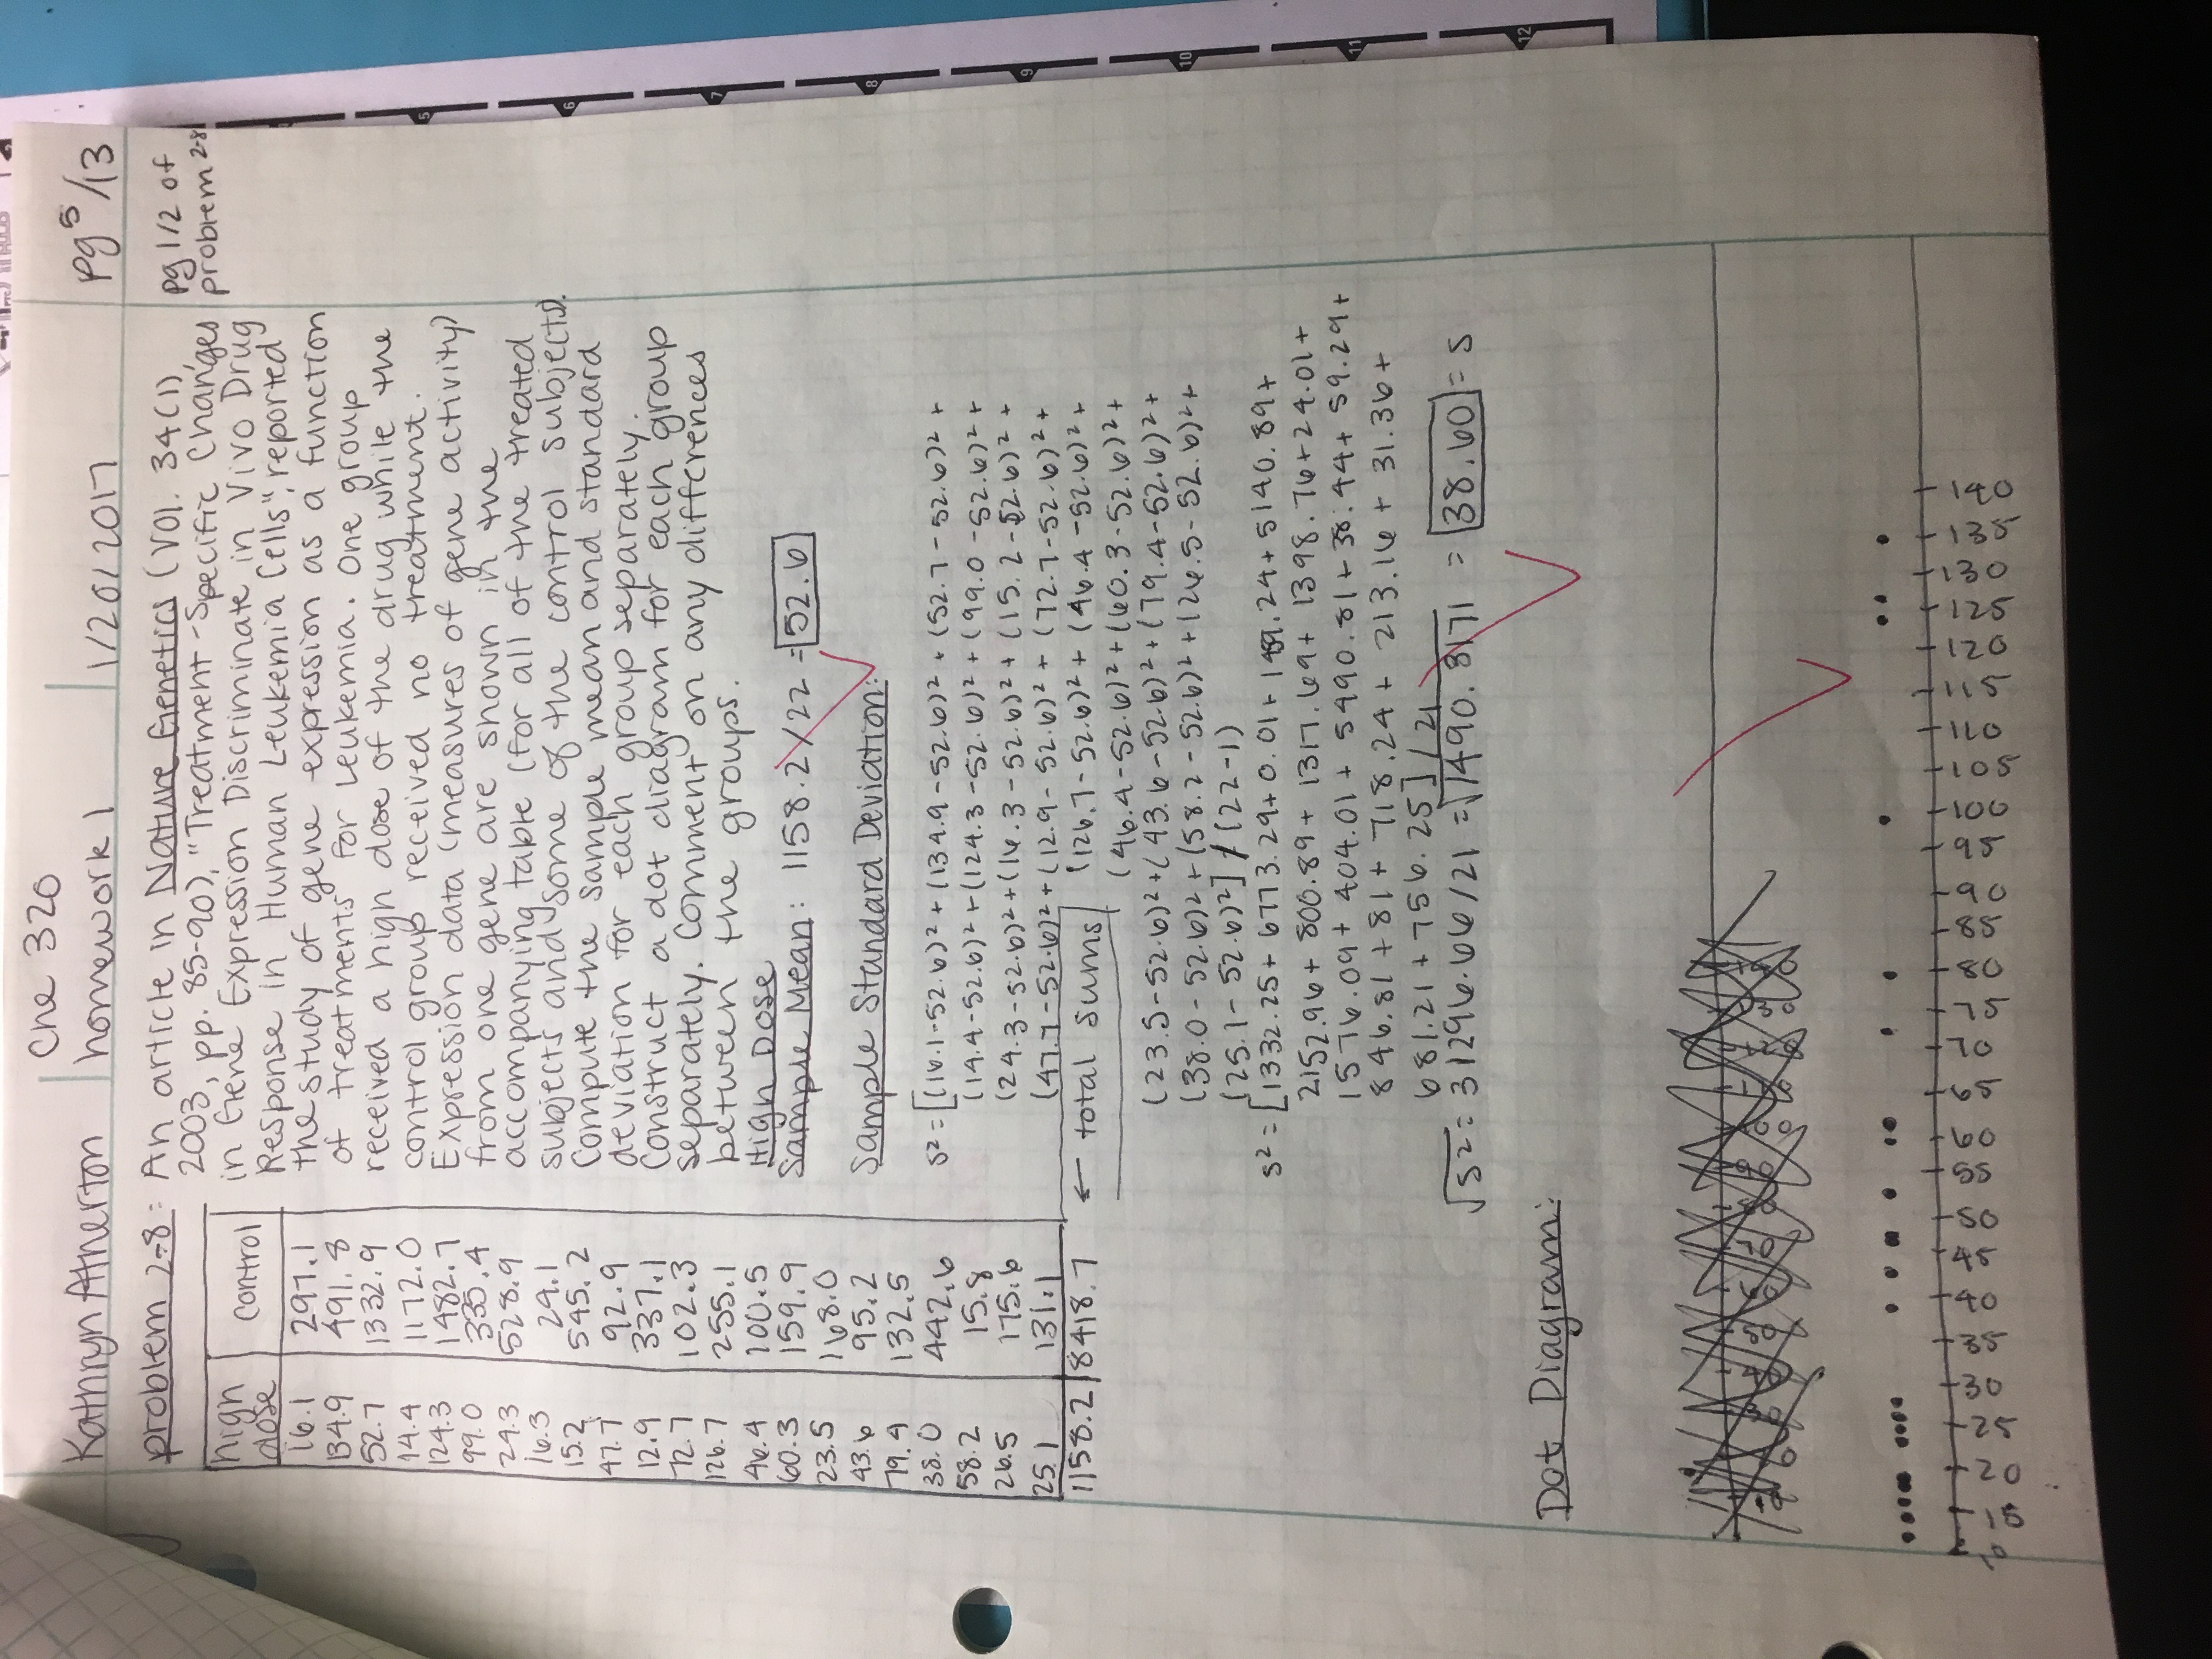 Kathryn Atherton
Che 320
homework 1
1/20/2017
pg 5/13
problem 2-8: An article in Nature Genetics (Vol. 34(1),
2003, pp. 85-90), "Treatment-Specific Changes
in Gene Expression Discriminate in Vivo Drug
Response in Human Leukemia Cells", reported
the study of gene expression as a function
of treatments for Leukemia. One group
received a high dose of the drug while the
control group received no treatment.
Expression data (measures of gene activity)
from one gene are shown in the
accompanying table (for all of the treated
subjects and some of the control subjects).
Compute the sample mean and standard
deviation for each group separately.
Construct a dot diagram for each group
separately. Comment on any differences
between the groups.
pg 1/2 of
problem 2-8
high dose control
16.1 297.1
134.9 491.8
52.7 1332.9
14.4 1172.0
124.3 1482.7
99.0 335.4
24.3 528.9
16.3 24.1
15.2 545.2
47.7 92.9
12.9 337.1
72.7 102.3
126.7 255.1
46.4 100.5
60.3 159.9
23.5 168.0
43.6 95.2
79.4 132.5
38.0 442.6
58.2 15.8
26.5 175.6
25.1 131.1
1158.2 8418.7 ← total sums
High Dose
Sample Mean: 1158.2/22 = 52.6
Sample Standard Deviation:
s² = [(16.1-52.6)² + (134.9-52.6)² + (52.7-52.6)² +
(14.4-52.6)² + (124.3-52.6)² + (99.0-52.6)² +
(24.3-52.6)² + (16.3-52.6)² + (15.2-52.6)² +
(47.7-52.6)² + (12.9-52.6)² + (72.7-52.6)² +
(126.7-52.6)² + (46.4-52.6)² +
(46.4-52.6)² + (60.3-52.6)² +
(23.5-52.6)² + (43.6-52.6)² + (79.4-52.6)² +
(38.0-52.6)² + (58.2-52.6)² + (26.5-52.6)² +
(25.1-52.6)²] / (22-1)
s² = [1332.25 + 6773.29 + 0.01 + 1459.24 + 5140.89 +
2152.96 + 800.89 + 1317.69 + 1398.76 + 24.01 +
1576.09 + 404.01 + 5490.81 + 38.44 + 59.29 +
846.81 + 81 + 718.24 + 213.16 + 31.36 +
681.21 + 756.25] / 21
√s² = 31296.66/21 = √1490.3171 = 38.60 = s
Dot Diagram:
10 15 20 25 30 35 40 45 50 55 60 65 70 75 80 85 90 95 100 105 110 115 120 125 130 135 140
5
6
7
8
9
10
11
12